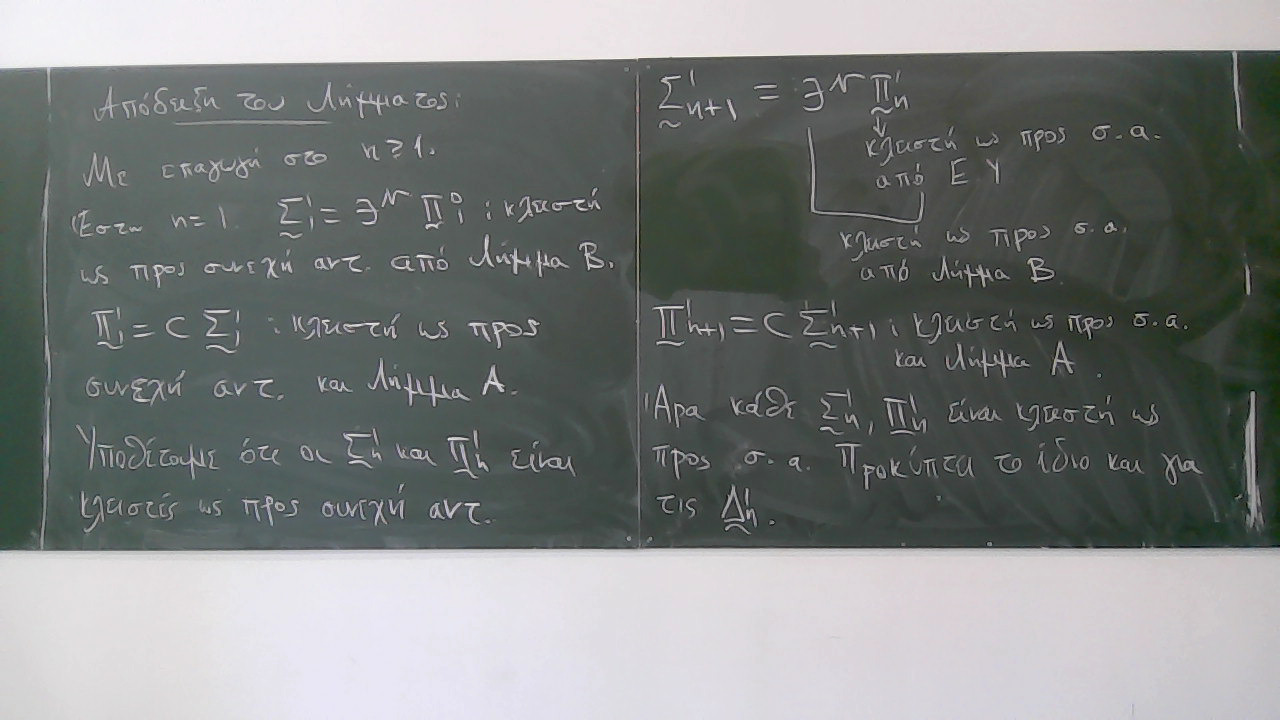 Απόδειξη του Λήμματος:
Με επαγωγή στο n ≥ 1.
Έστω n = 1. Σ¹₁ = ∃^𝒩 Π⁰₁ : κλειστή
ως προς συνεχή αντ. από Λήμμα Β.
Π¹₁ = C Σ¹₁ : κλειστή ως προς
συνεχή αντ. και Λήμμα Α.
Υποθέτουμε ότι οι Σ¹ₙ και Π¹ₙ είναι
κλειστές ως προς συνεχή αντ.
Σ¹ₙ₊₁ = ∃^𝒩 Π¹ₙ
↓
κλειστή ως προς σ.α.
από Ε Υ
κλειστή ως προς σ.α.
από Λήμμα Β
Π¹ₙ₊₁ = C Σ¹ₙ₊₁ : κλειστή ως προς σ.α.
και Λήμμα Α.
Άρα κάθε Σ¹ₙ, Π¹ₙ είναι κλειστή ως
προς σ.α. Προκύπτει το ίδιο και για
τις Δ¹ₙ.